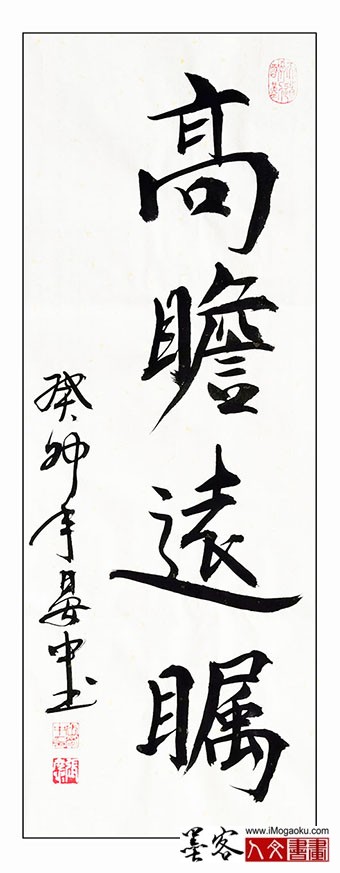 高瞻遠瞩
癸卯年晏中书
墨客
www.iMogaoku.com
人文書畫